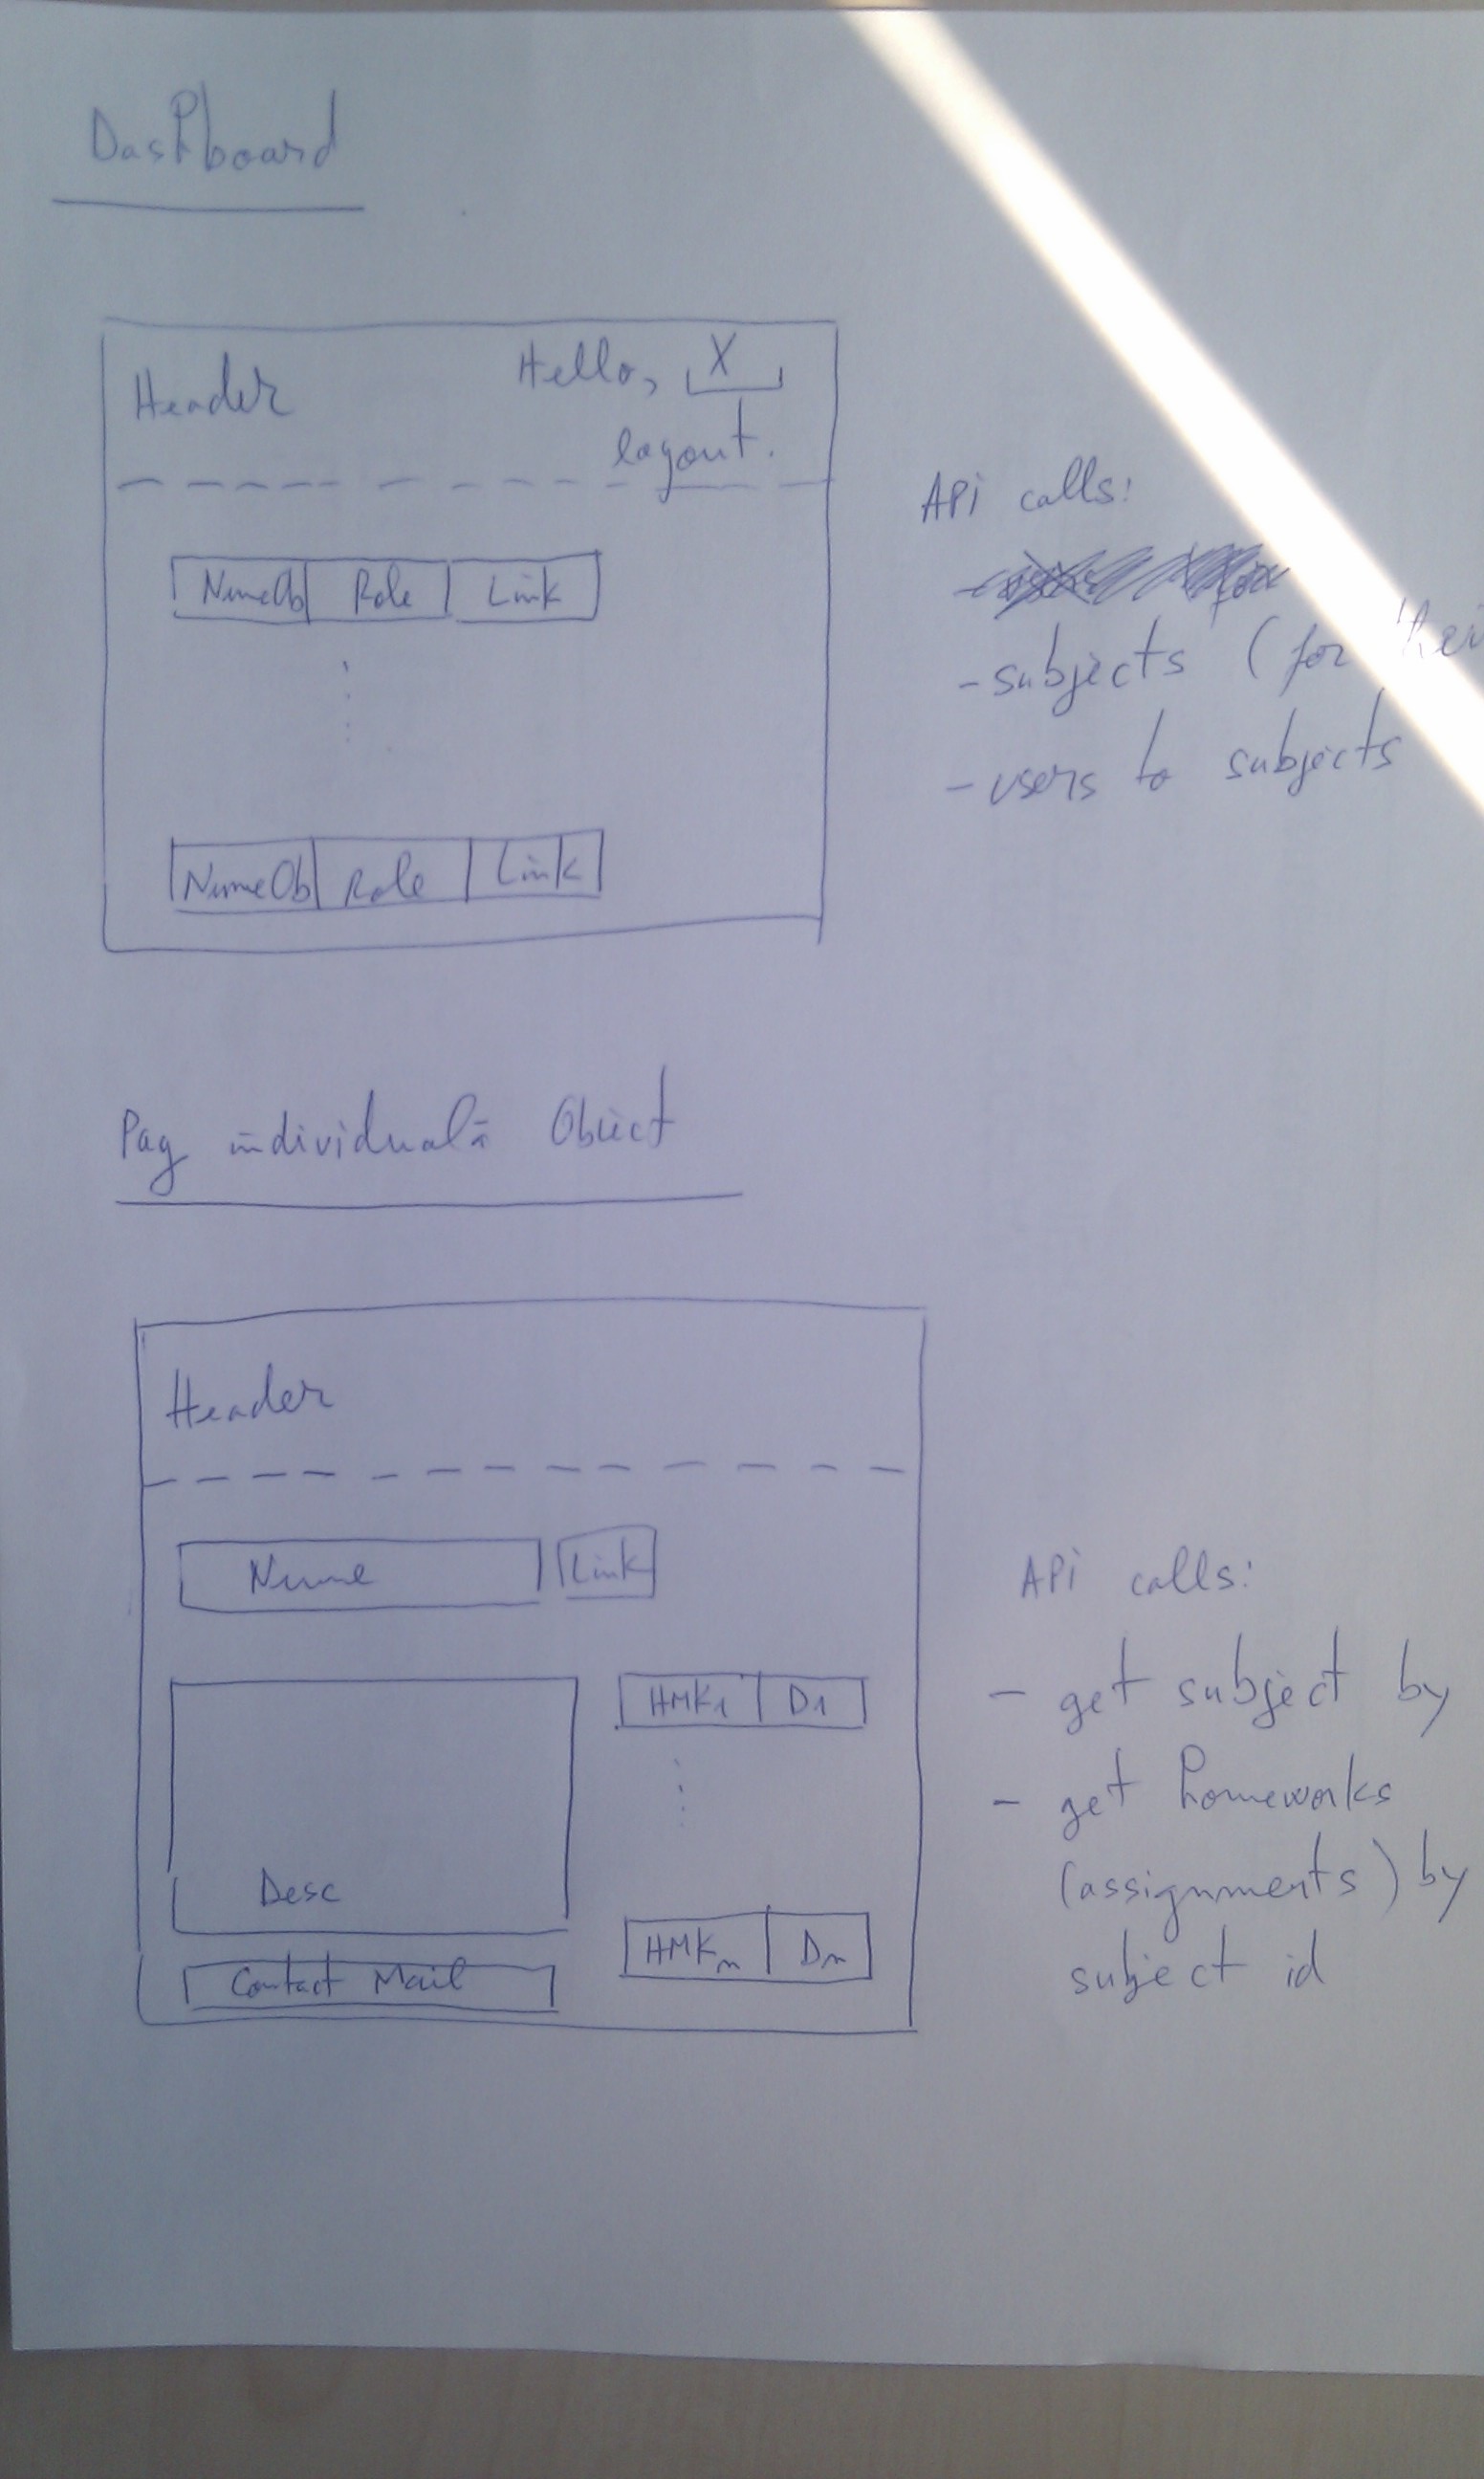 Dashboard
Header
Hello, X
logout.
NumeOb Role Link
NumeOb Role Link
Api calls:
- subjects (for
- users to subjects
Pag individuală Obiect
Header
Nume Link
Desc
Contact Mail
HMK1 D1
HMKn Dn
Api calls:
- get subject by
- get homeworks
(assignments) by
subject id